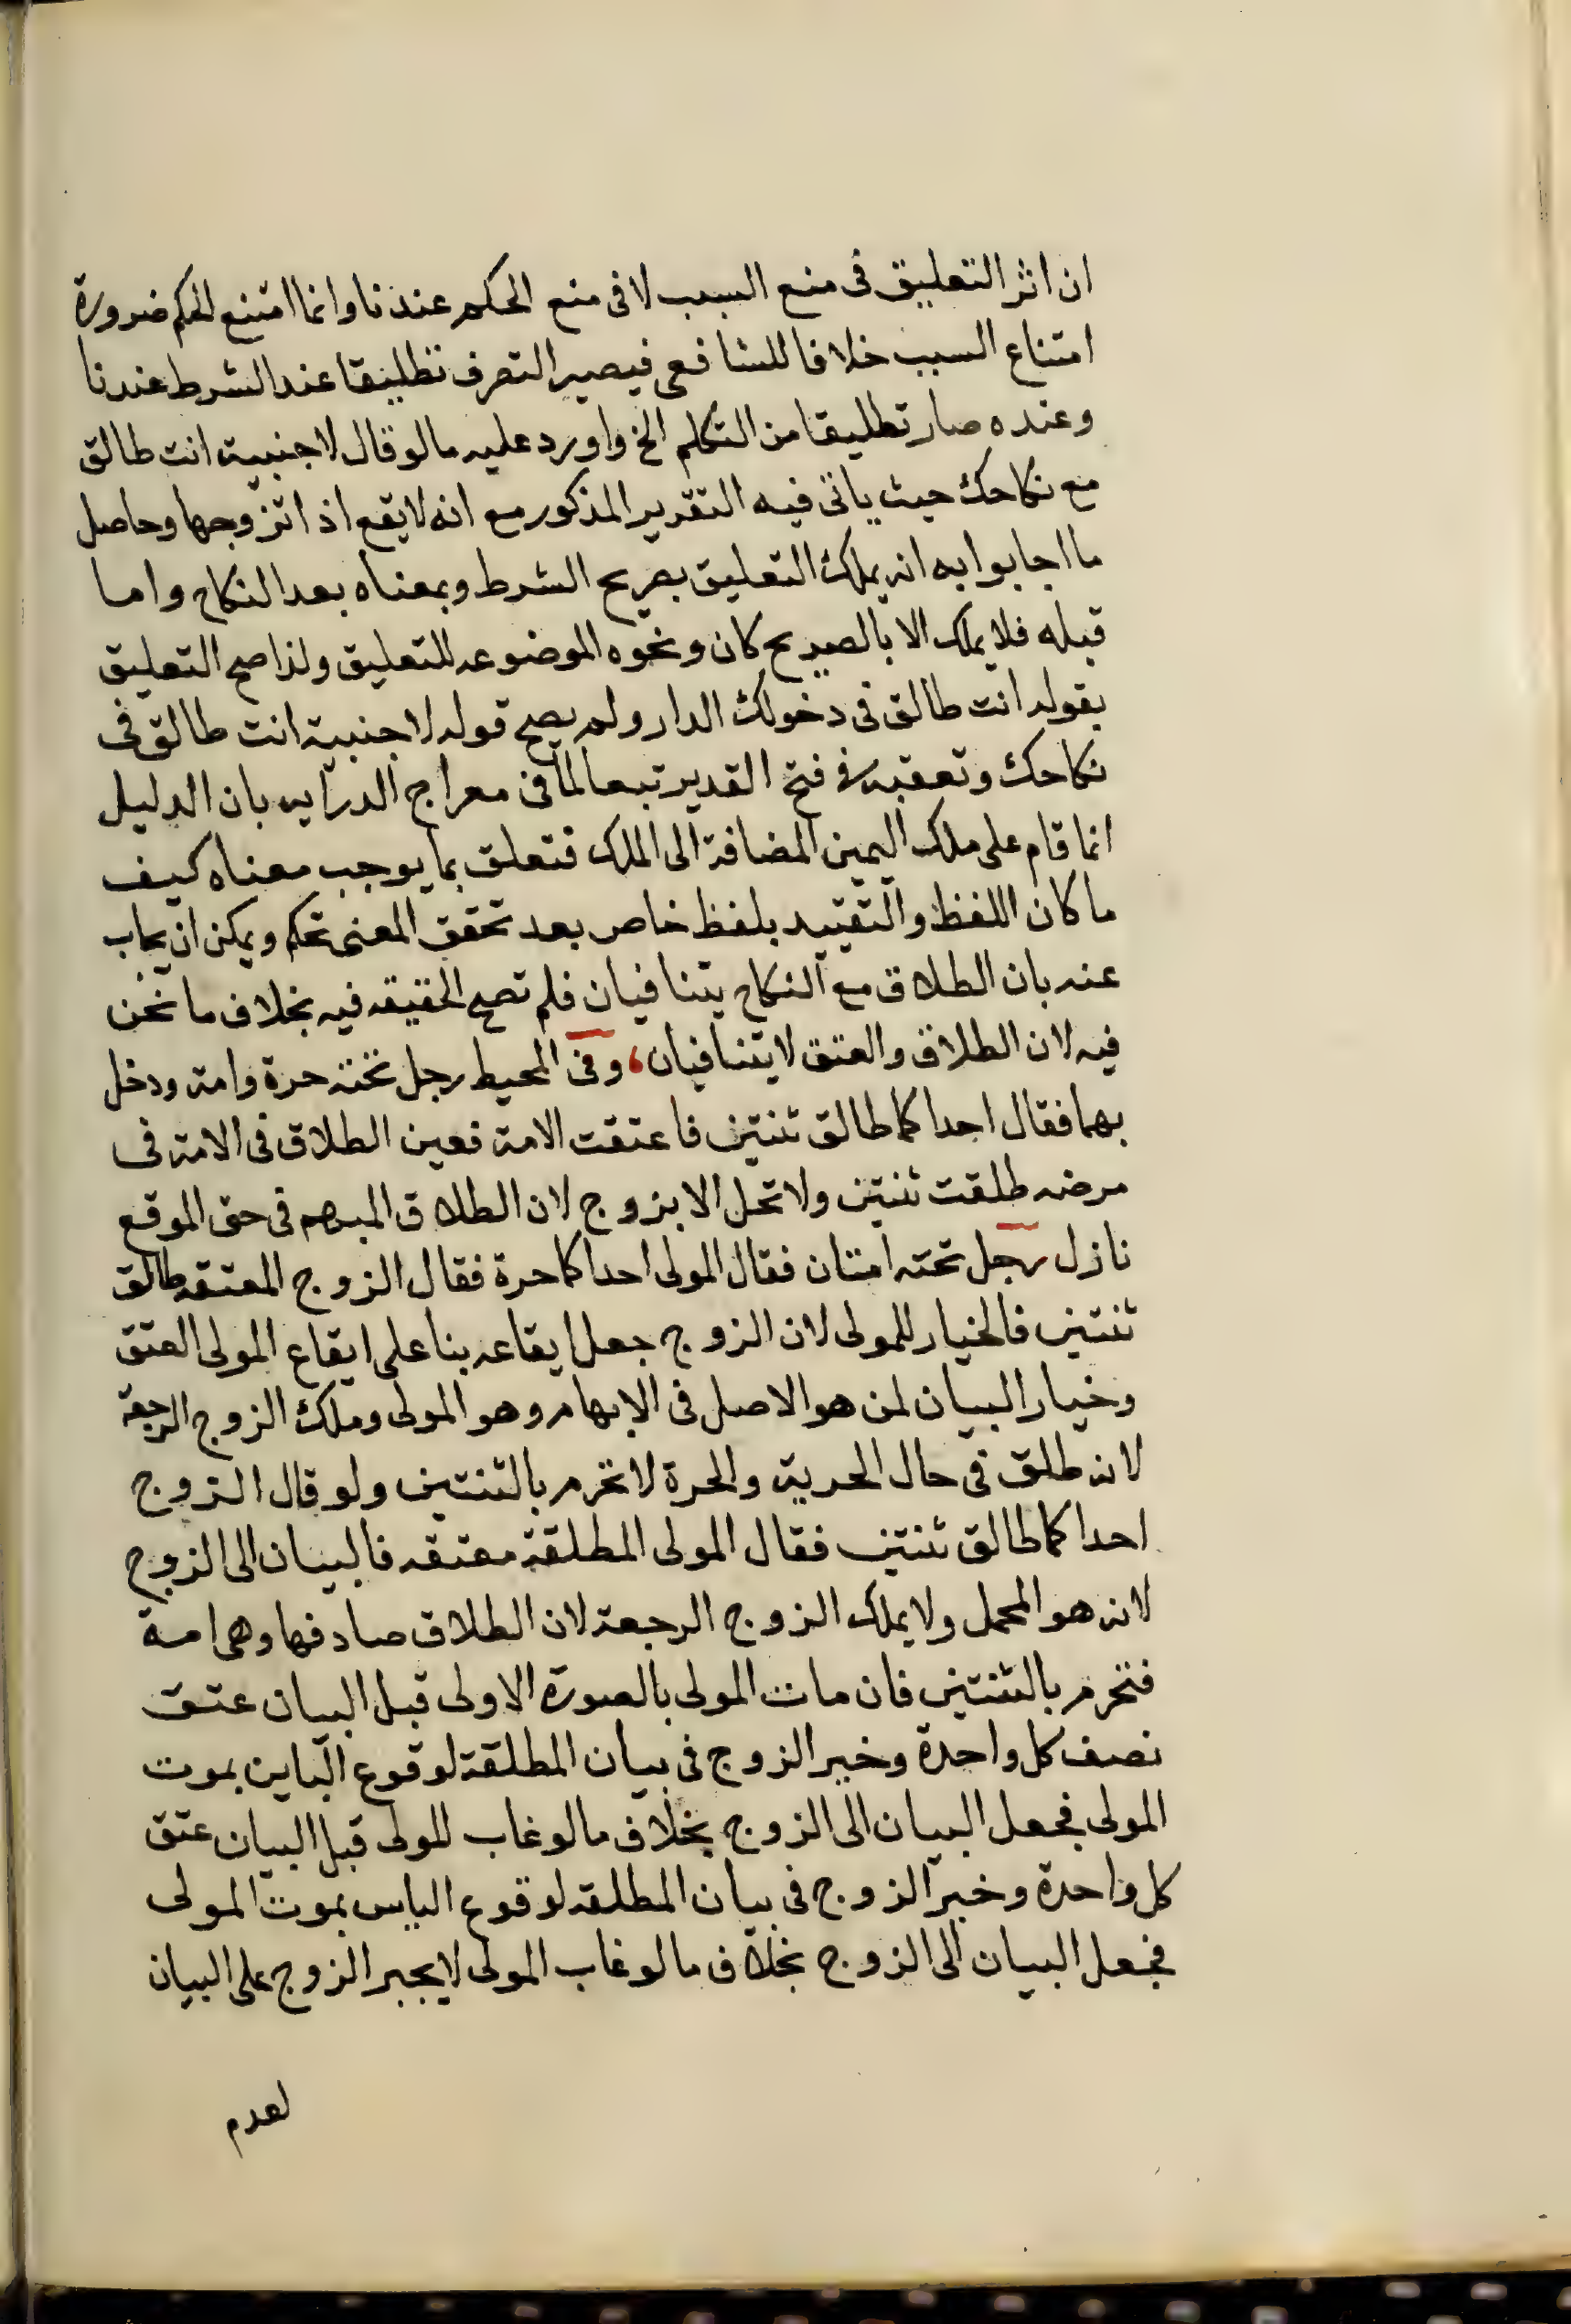 ان اثر التعليق فى منع السبب لا فى منع الحكم عندنا وانما امتنع الحكم ضرورة
امتناع السبب خلافا للشافعى فيصير التصرف تطليقا عند الشرط عندنا
وعنده صار تطليقا من التكلم الخ واورد عليه مالو قال لاجنبية انت طالق
مع نكاحك حيث ياتى فيه التقرير المذكور مع انه لايقع اذا تزوجها وحاصل
ما اجابوا به انه يملك التعليق بصريح الشرط وبمعناه بعد النكاح واما
قبله فلا يملك الا بالصريح كان ونحوه الموضوعه للتعليق ولذا صح التعليق
بقوله انت طالق فى دخولك الدار ولم يصح قوله لاجنبية انت طالق فى
نكاحك وتعقبه فى فتح القدير تبعا لما فى معراج الدرايه بان الدليل
انما قام على ملك اليمين المضافة الى الملك فتعلق بما يوجب معناه كيف
ما كان اللفظ والتقييد بلفظ خاص بعد تحقق المعنى تحكم ويمكن ان يجاب
عنه بان الطلاق مع النكاح يتنافيان فلم تصح الحقيقه فيه بخلاف ما نحن
فيه لان الطلاق والعتق لا يتنافيان، وفى المحيط رجل تحته حرة وامة ودخل
بهما فقال احداكما طالق ثنتين فاعتقت الامة فعين الطلاق فى الامة فى
مرضه طلقت ثنتين ولا تحل الا بزوج لان الطلاق المبهم فى حق الموقع
نازل رجل تحته امتان فقال المولى احداكما حرة فقال الزوج المعتقه طالق
ثنتين فالخيار للمولى لان الزوج جعل ايقاعه بنا على ايقاع المولى العتق
وخيار البيان لمن هو الاصل فى الابهام وهو المولى وملك الزوج الرجعة
لانه طلق فى حال الحرية والحرة لا تحرم بالثنتين ولو قال الزوج
احداكما طالق ثنتين فقال المولى المطلقة معتقه فالبيان الى الزوج
لانه هو المجمل ولا يملك الزوج الرجعة لان الطلاق صادفها وهى امة
فتحرم بالثنتين فان مات المولى بالصورة الاولى قبل البيان عتق
نصف كل واحدة وخير الزوج فى بيان المطلقة لوقوع الباين بموت
المولى فجعل البيان الى الزوج بخلاف مالو غاب المولى قبل البيان عتق
كل واحدة وخير الزوج فى بيان المطلقه لوقوع الياس بموت المولى
فجعل البيان الى الزوج بخلاف مالو غاب المولى لا يجبر الزوج على البيان
لعدم